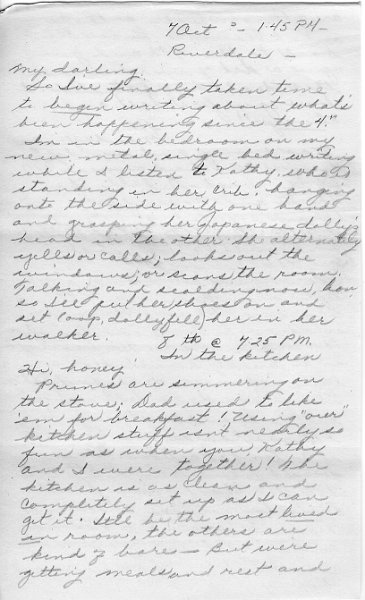 7 Oct - 1:45 PM -
Riverdale -
My darling,
So I've finally taken time
to begin writing about what's
been happening since the 4th
I'm in the bedroom on my
new, metal, single bed writing
while I listen to Kathy, who is
standing in her crib, hanging
onto the side with one hand
and grasping her Japanese dolly's
head in the other. She alternately
yells or calls; looks out the
windows; or scans the room.
Talking and scolding now, hon
so I'll put her shoes on and
set (oop, dolly fell) her in her
walker.
8th @ 7:25 P.M.
In the kitchen
Hi, honey!
Prunes are simmering on
the stove; Dad used to like
'em for breakfast! Using "our"
kitchen stuff isn't nearly so
fun as when you, Kathy
and I were together! The
kitchen is as clean and
completely set up as I can
get it. It'll be the most lived
in room, the others are
kind of bare - But we're
getting meals and rest and